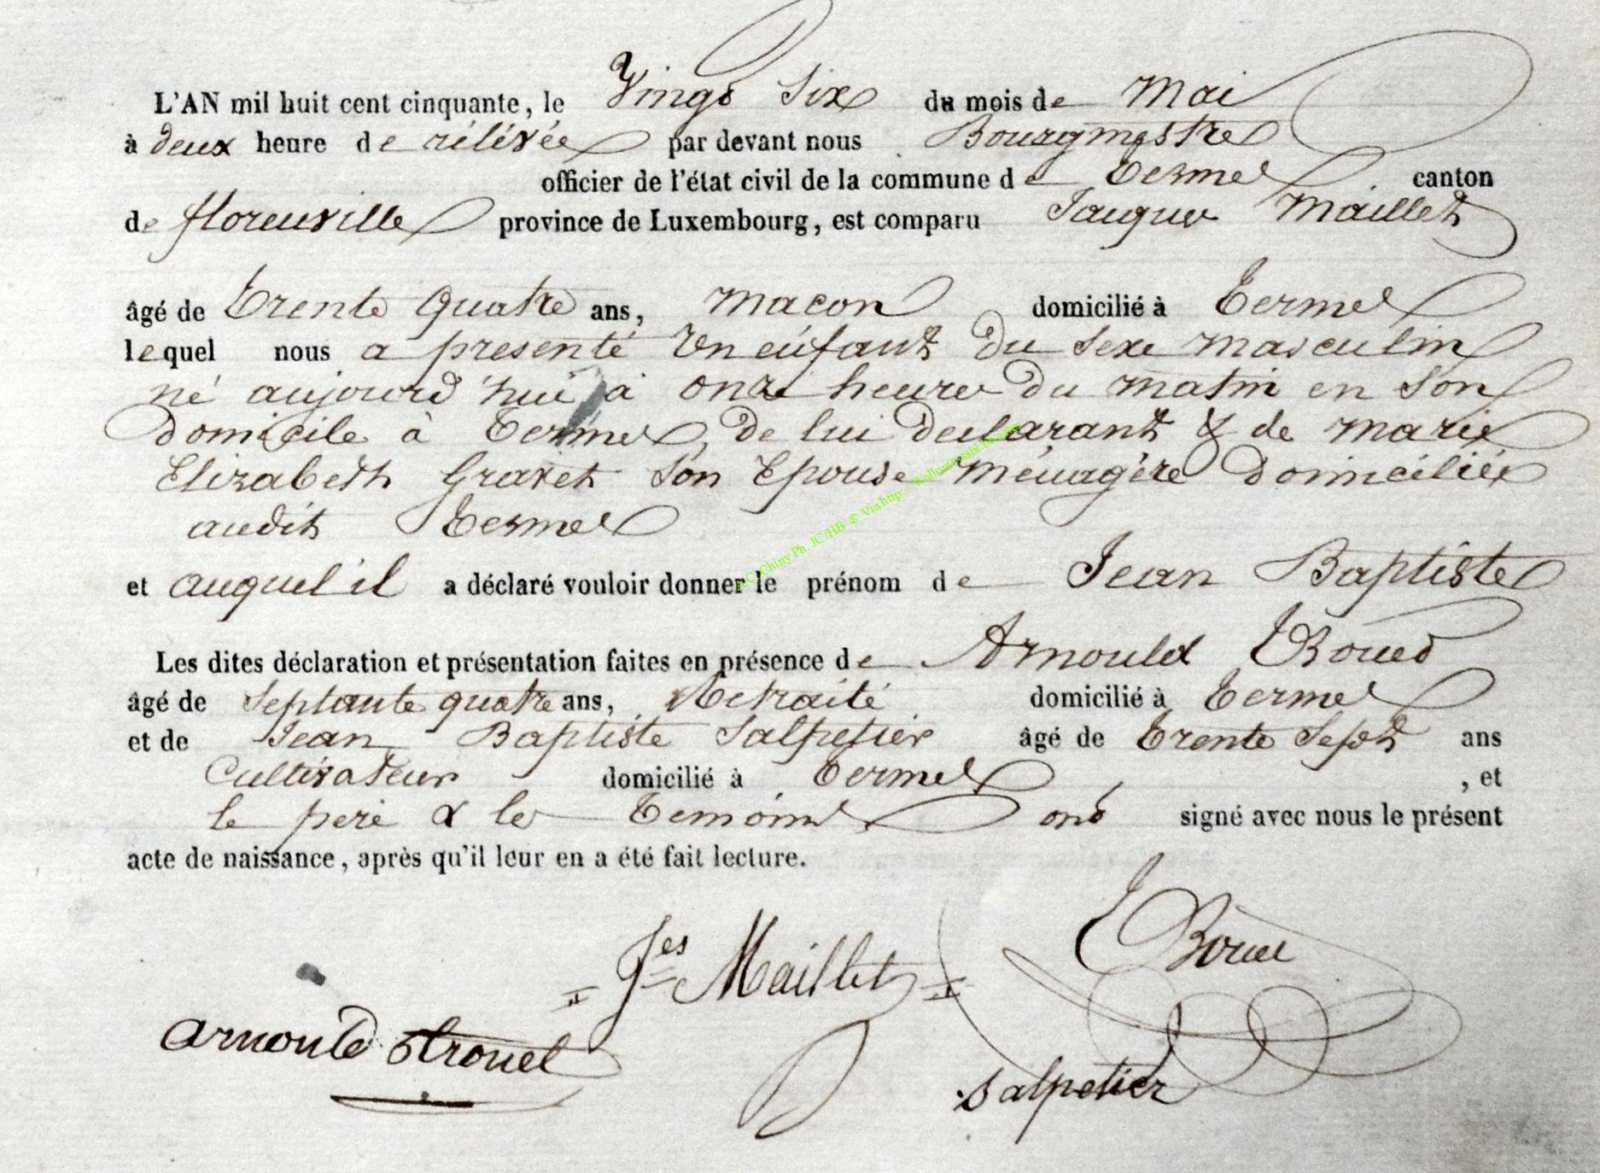 L'AN mil huit cent cinquante, le Vingt Six du mois de Mai
à deux heure de rélévée par devant nous Bourgmestre
officier de l'état civil de la commune de Termes canton
de florenville province de Luxembourg, est comparu Jacques Maillet
âgé de Trente quatre ans, macon domicilié à Termes
lequel nous a presenté un enfant du sexe masculin
né aujourd'hui à onze heures du matin en son
domicile à Termes, de lui declarant & de marie
Elizabeth Gravet son Epouse ménagère domiciliée
audit Termes
et auquel il a déclaré vouloir donner le prénom de Jean Baptiste
Les dites déclaration et présentation faites en présence de Arnould
âgé de septante quatre ans, Retraité domicilié à Termes
et de Jean Baptiste Salpetier âgé de Trente Sept ans
Cultivateur domicilié à Termes , et
le pere & les Temoins ont signé avec nous le présent
acte de naissance, après qu'il leur en a été fait lecture.
Jes Maillet
arnould
Salpetier